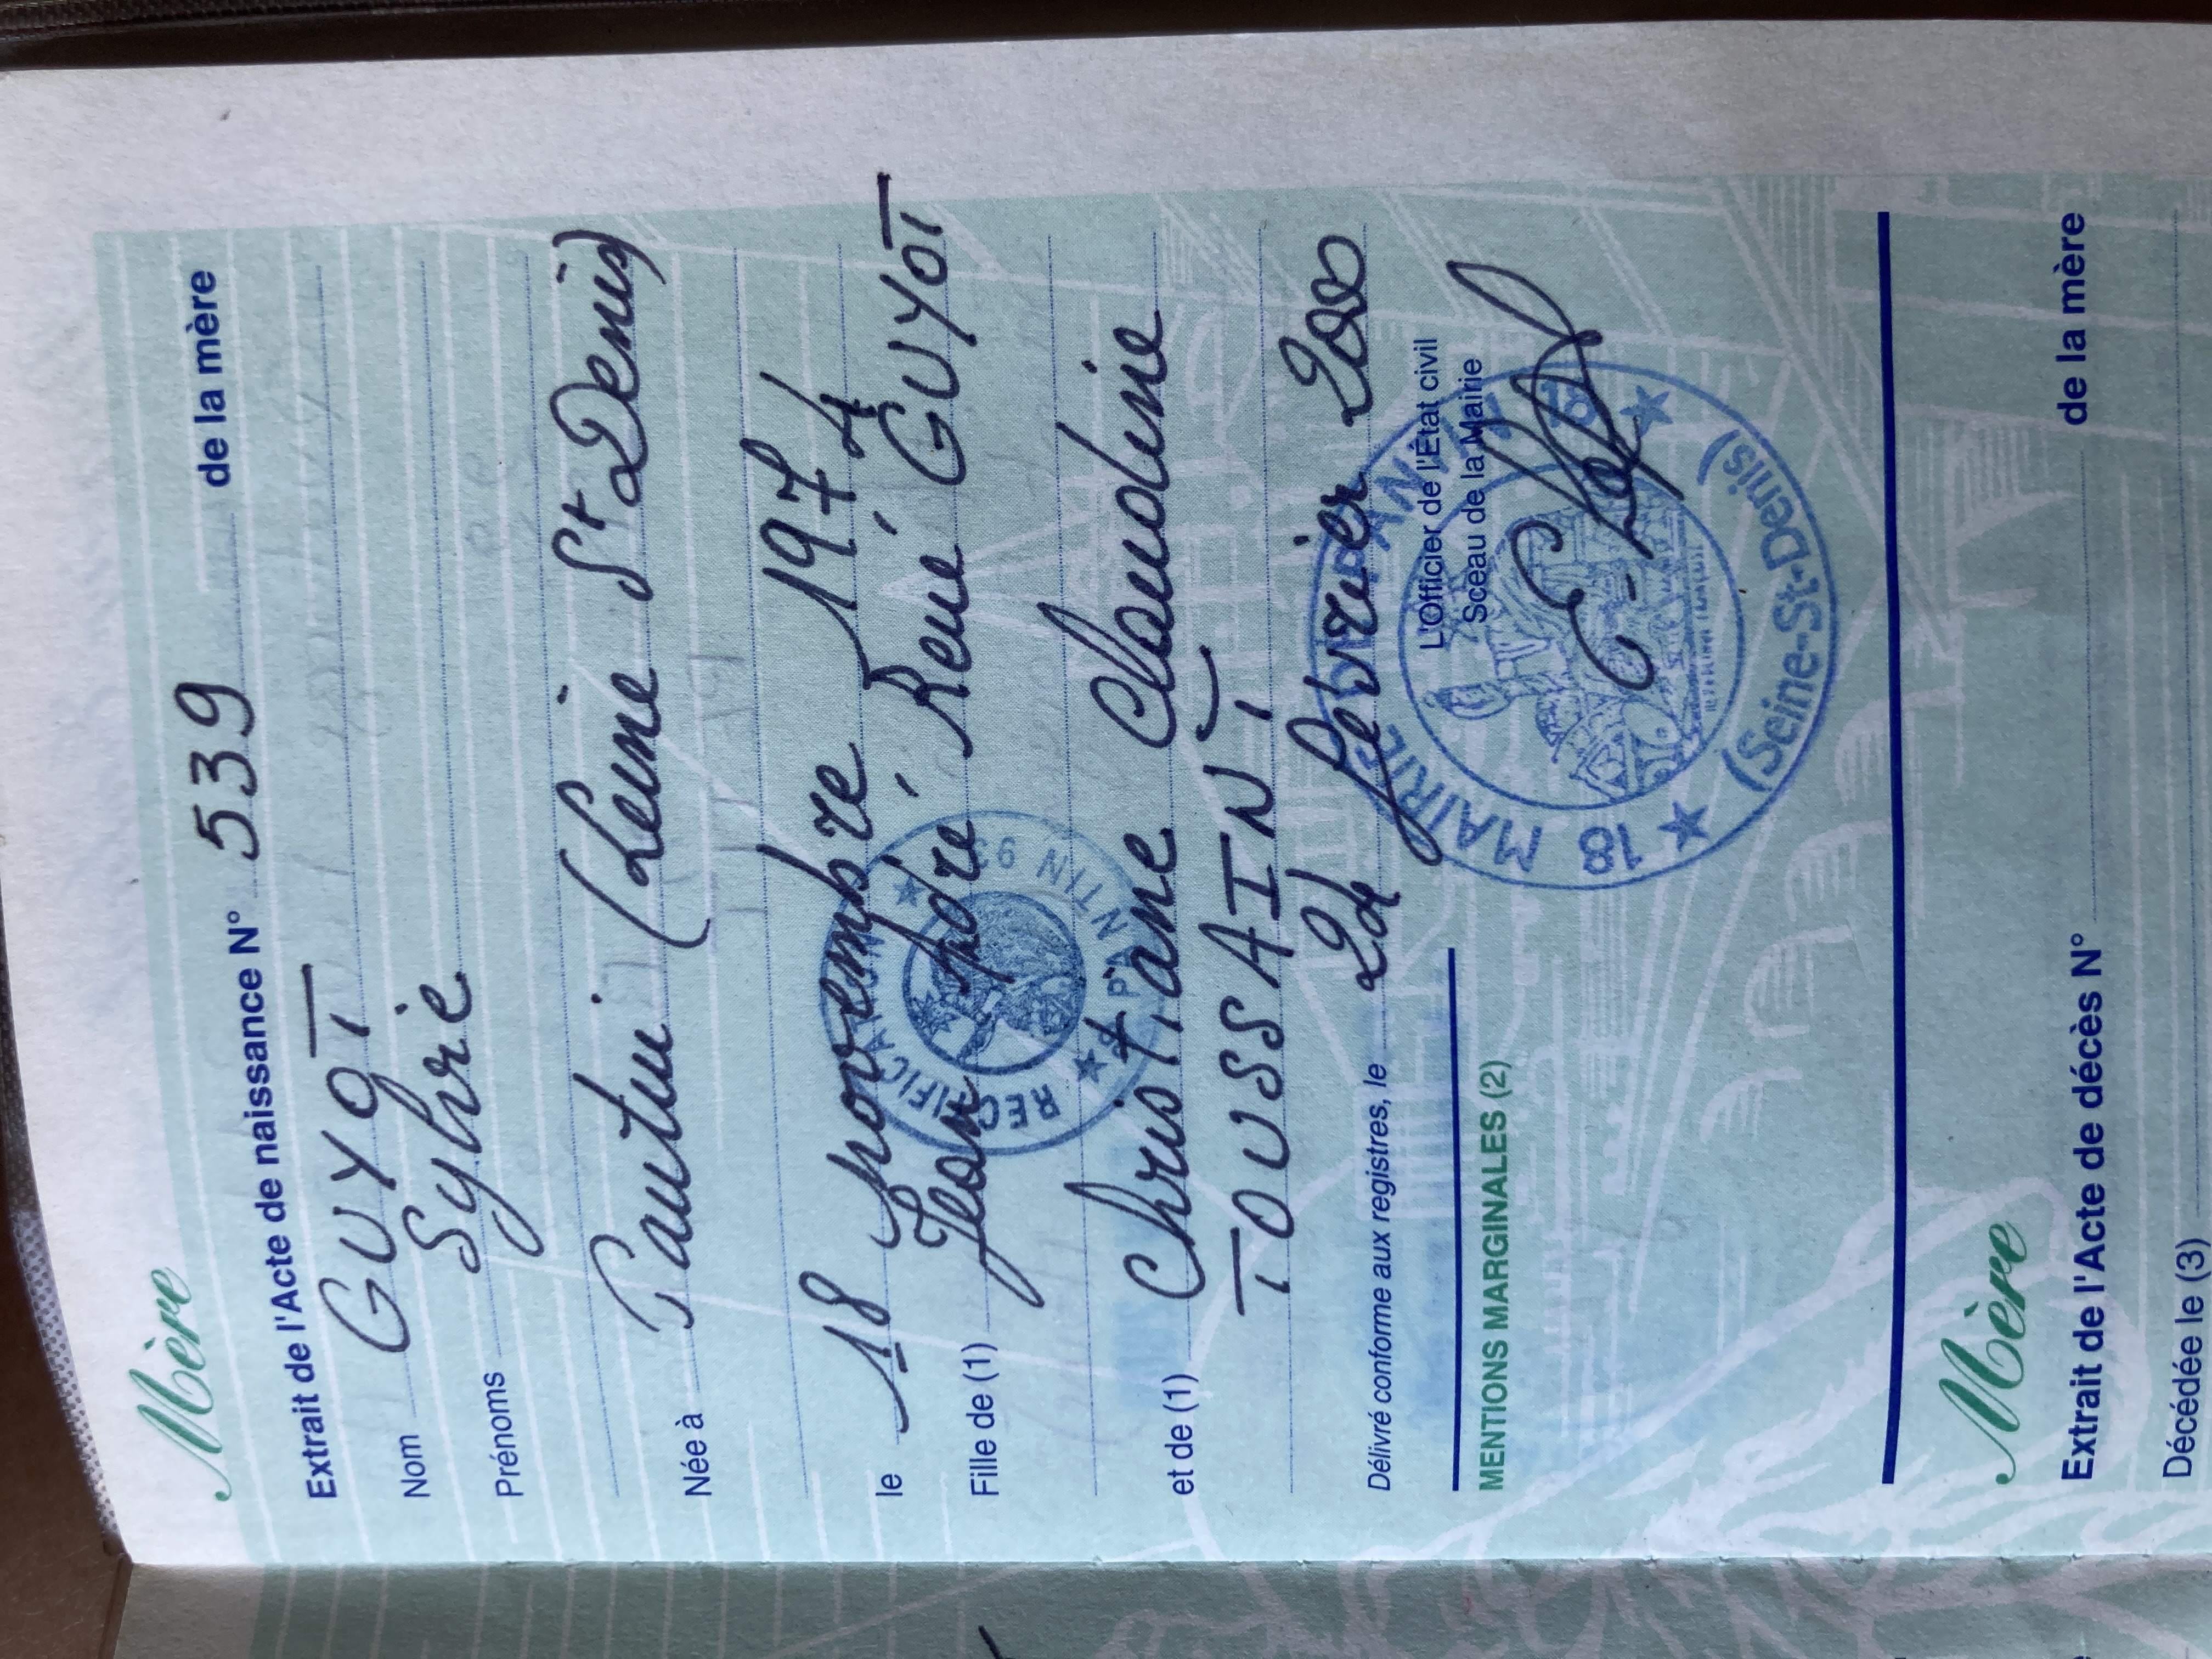 Mère
Extrait de l'Acte de naissance N° 539 de la mère
Nom GUYOT
Prénoms Sylvie
Née à Pantin (Seine St Denis)
le 18 novembre 1974
Fille de (1) Jean, André, René GUYOT
et de (1) Christiane Claudine
TOUSSAINT
Délivré conforme aux registres, le 2d février 2000
L'Officier de l'État civil
Sceau de la Mairie
MAIRIE DE PANTIN
18 18
(Seine-St-Denis)
PANTIN 93
MENTIONS MARGINALES (2)
Mère
Extrait de l'Acte de décès N° de la mère
Décédée le (3)